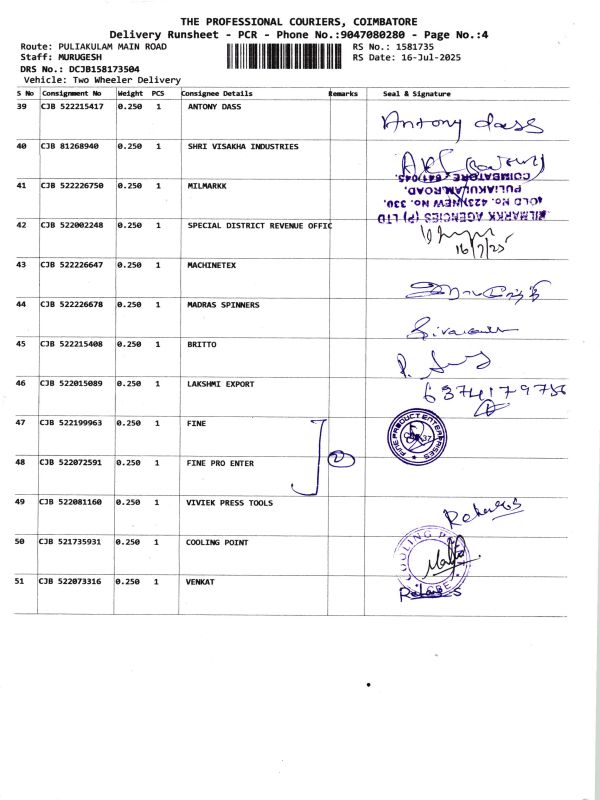 THE PROFESSIONAL COURIERS, COIMBATORE
Delivery Runsheet - PCR - Phone No.:9047080280 - Page No.:4
Route: PULIAKULAM MAIN ROAD RS No.: 1581735
Staff: MURUGESH RS Date: 16-Jul-2025
DRS No.: DCJB158173504
Vehicle: Two Wheeler Delivery
S No Consignment No Weight PCS Consignee Details Remarks Seal & Signature
39 CJB 522215417 0.250 1 ANTONY DASS Antony dass
40 CJB 81268940 0.250 1 SHRI VISAKHA INDUSTRIES
41 CJB 522226750 0.250 1 MILMARKK
MILMARKK AGENCIES (P) LTD
OLD No. 423/NEW No. 330,
PULIAKULAM ROAD,
COIMBATORE - 641 045.
42 CJB 522002248 0.250 1 SPECIAL DISTRICT REVENUE OFFIC
16/7/25
43 CJB 522226647 0.250 1 MACHINETEX
44 CJB 522226678 0.250 1 MADRAS SPINNERS
45 CJB 522215408 0.250 1 BRITTO
46 CJB 522015089 0.250 1 LAKSHMI EXPORT
47 CJB 522199963 0.250 1 FINE
FINE PRODUCT ENTERPRISES
48 CJB 522072591 0.250 1 FINE PRO ENTER 2
49 CJB 522081160 0.250 1 VIVIEK PRESS TOOLS
50 CJB 521735931 0.250 1 COOLING POINT
COOLING
51 CJB 522073316 0.250 1 VENKAT